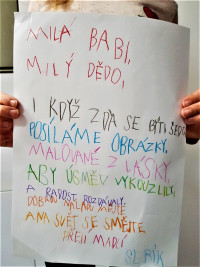 MILÁ BABI,
MILÝ DĚDO,
I KDYŽ ZDÁ SE BÝTI ŠEDO,
POSÍLÁME OBRÁZKY,
MALOVANÉ Z LÁSKY,
ABY ÚSMĚV VYKOUZLILY,
A RADOST ROZDÁVALY.
DOBROU NÁLADU MĚJTE
A NA SVĚT SE SMĚJTE